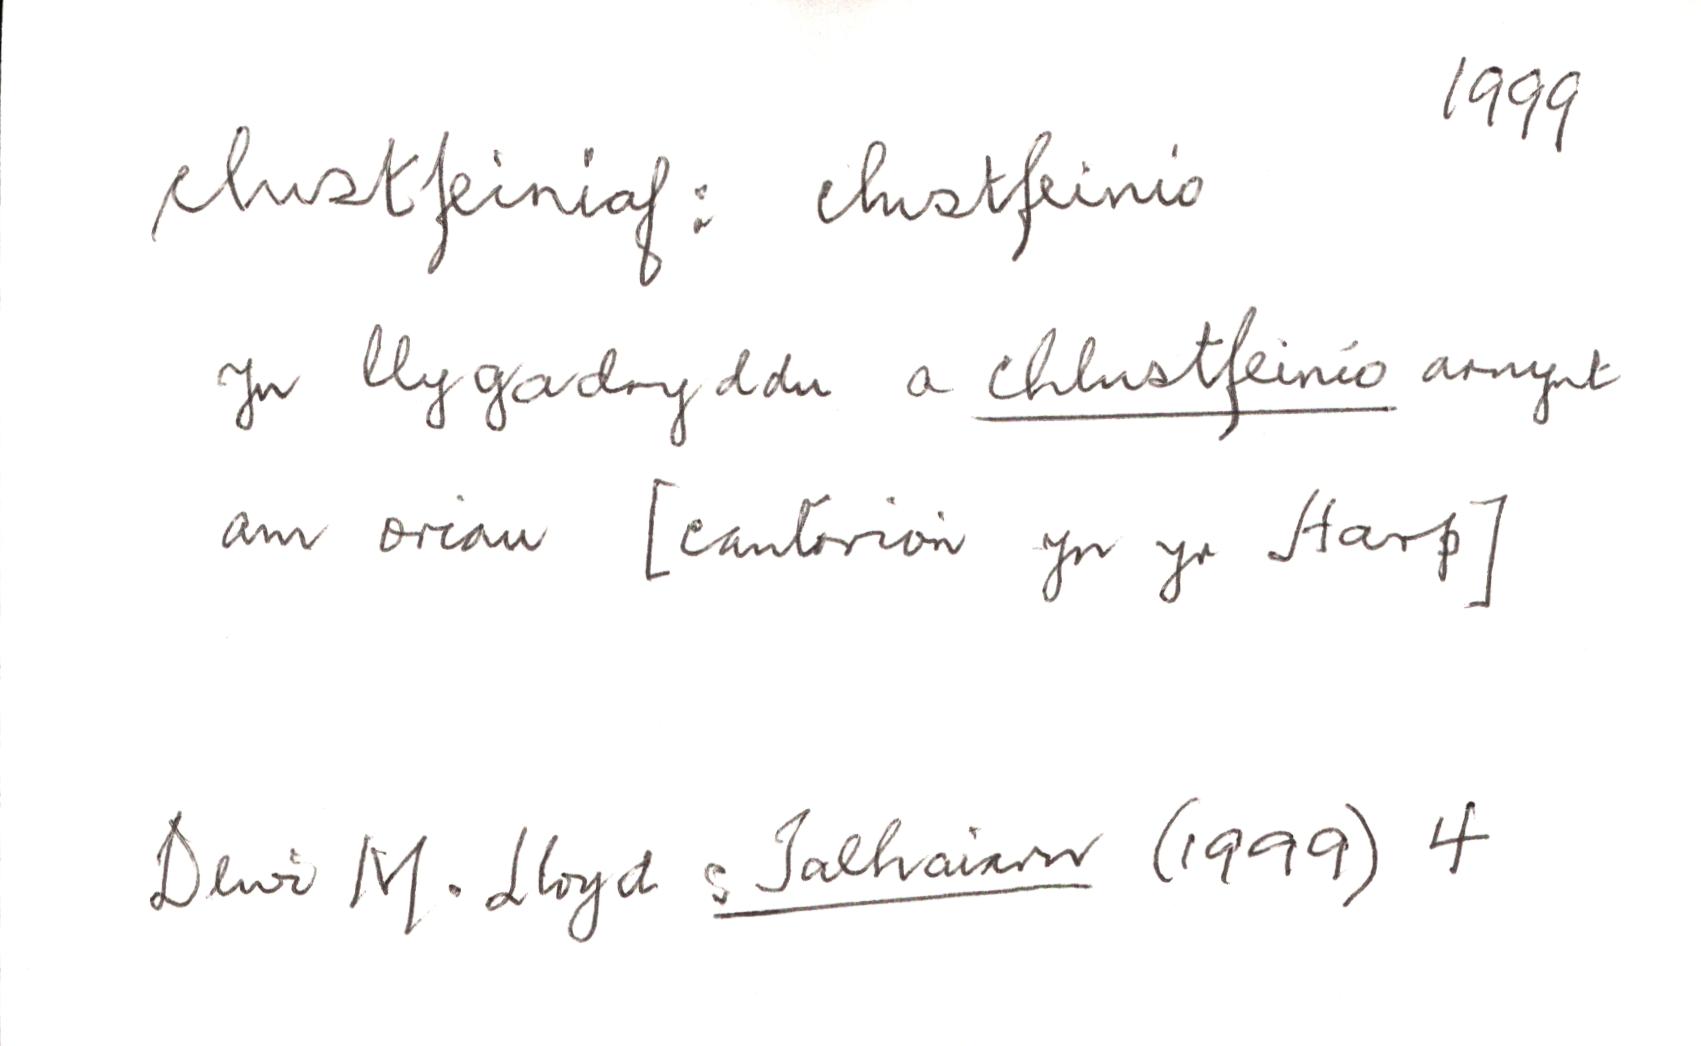 1999
clustfeiniaf: clustfeinio
yn llygadryddu a chlustfeinio arnynt
am oriau [cantorion yn yr Harp]
Dewi M. Lloyd: Talhaiarn (1999) 4